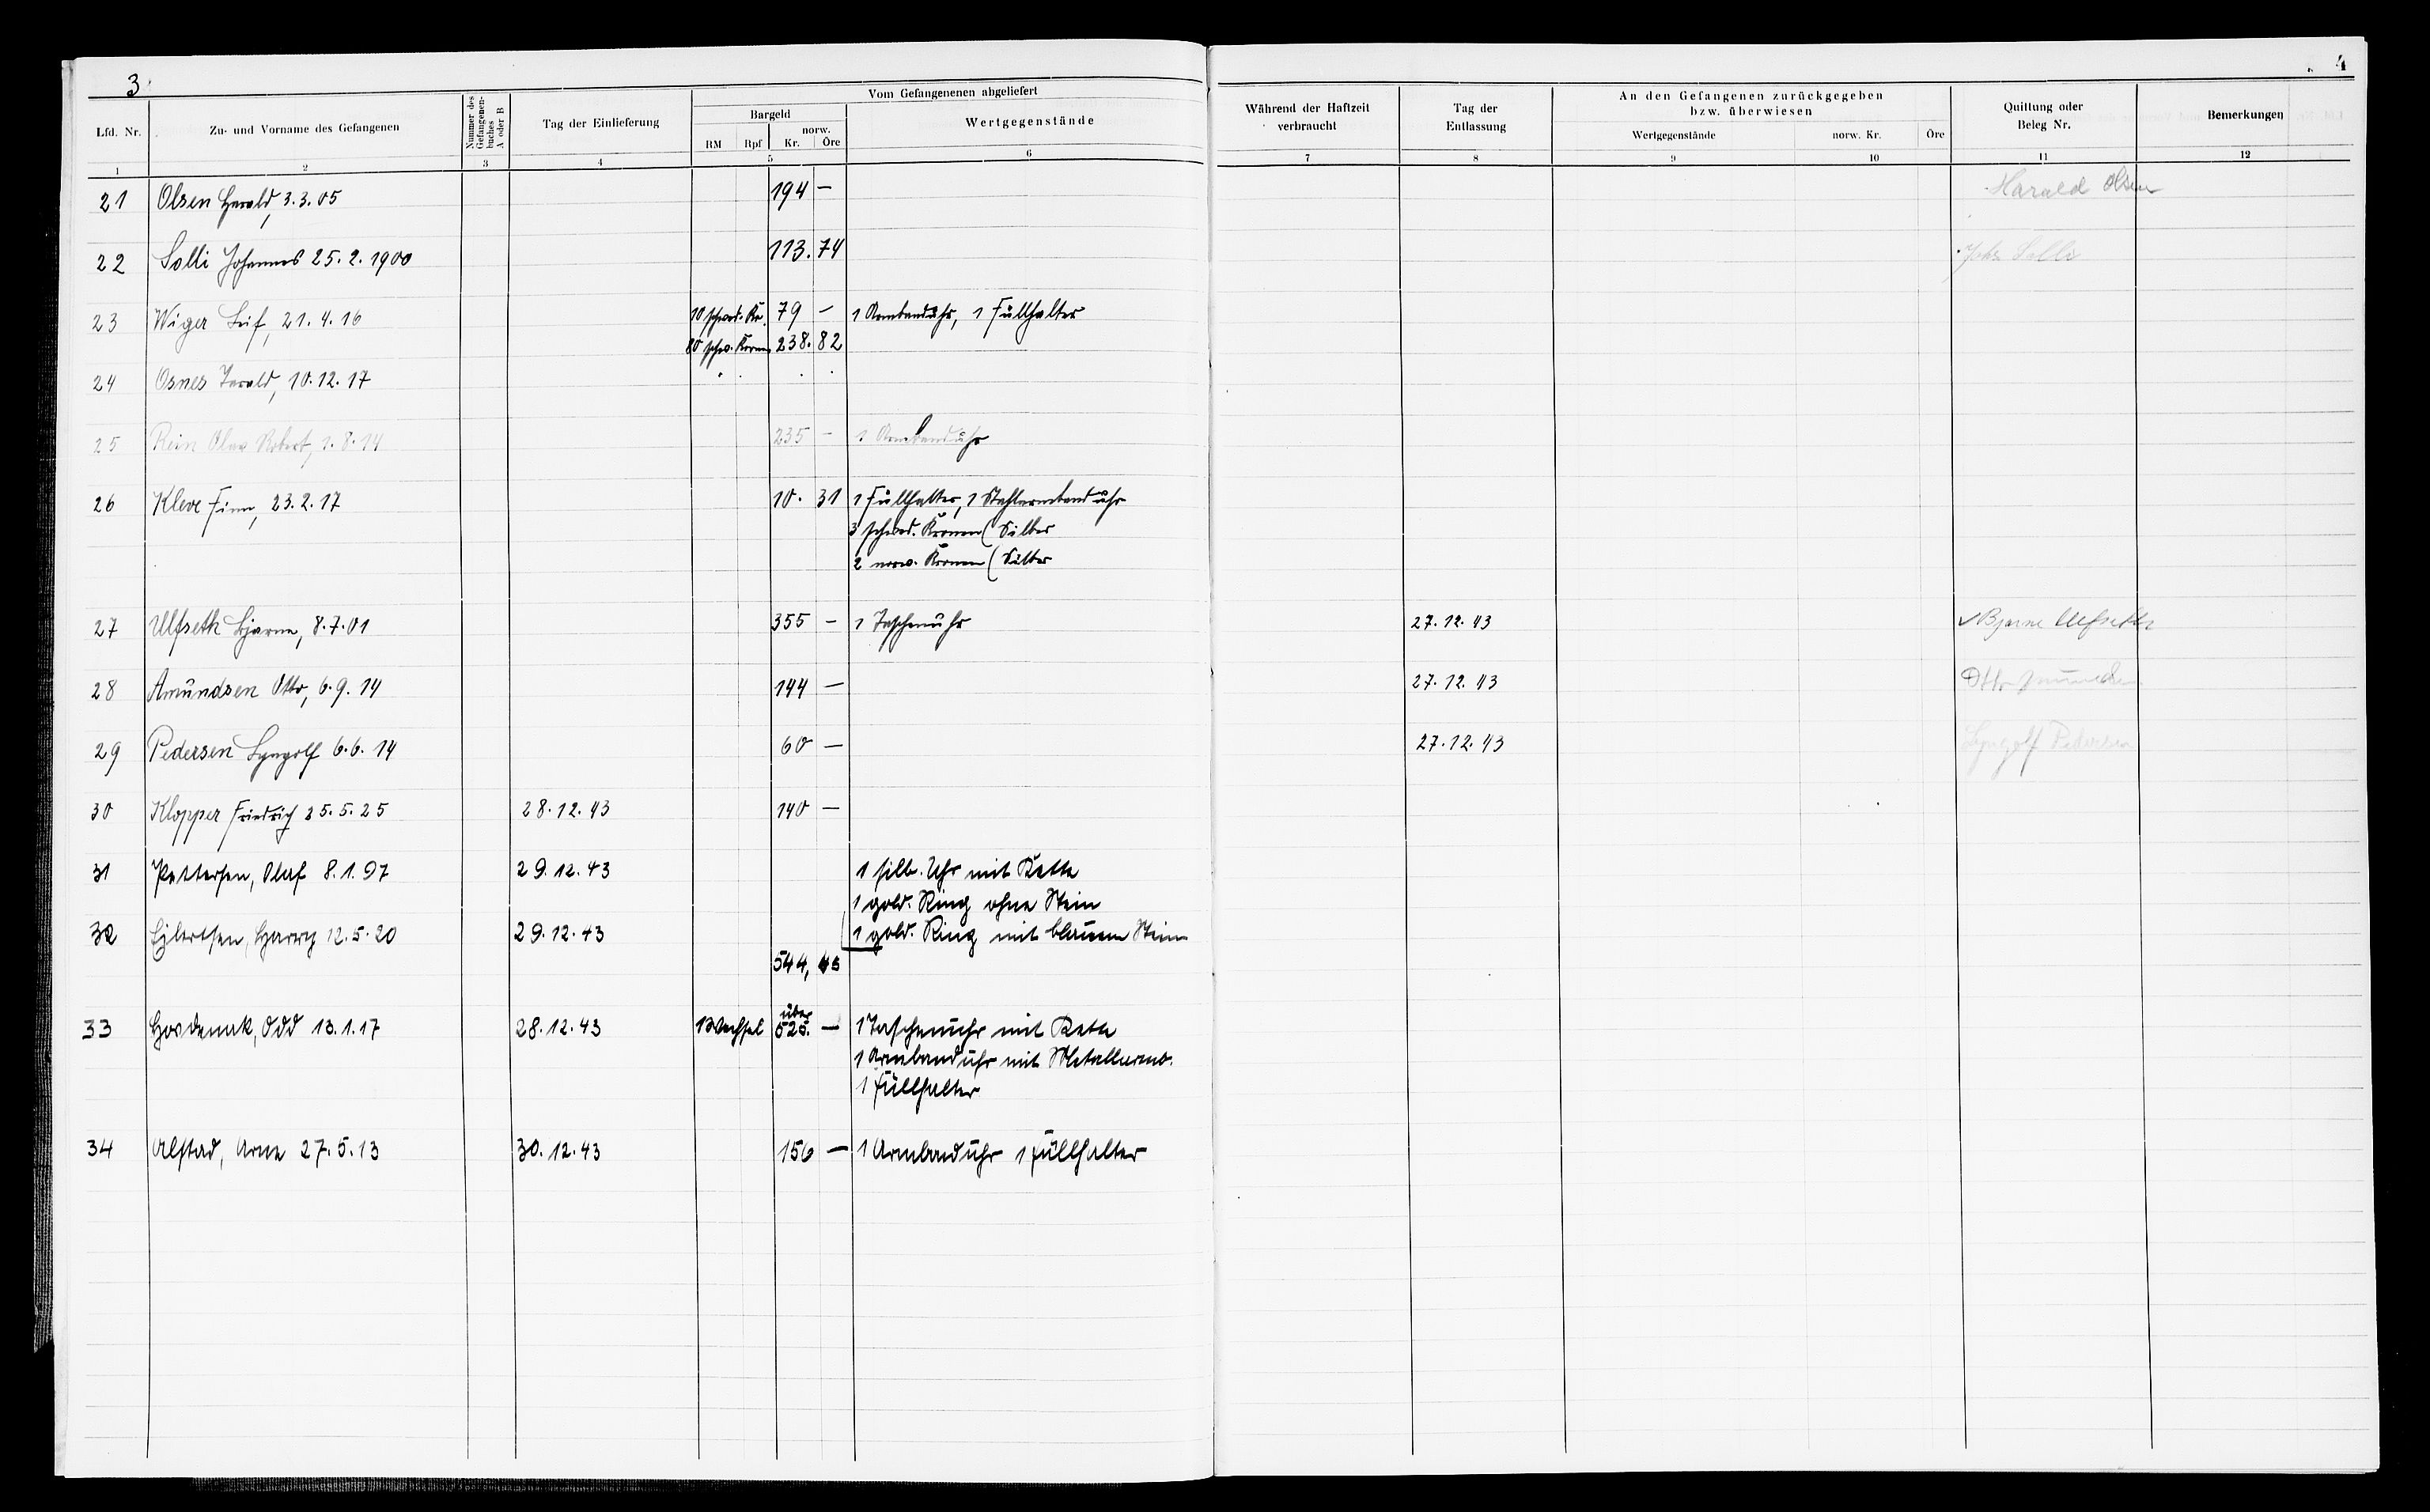 3
4
Lfd. Nr.
Zu- und Vorname des Gefangenen
Nummer des Gefangenen-buches A oder B
Tag der Einlieferung
Vom Gefangenenen abgeliefert
Bargeld
RM Rpf norw. Kr. Öre
Wertgegenstände
Während der Haftzeit verbraucht
Tag der Entlassung
An den Gefangenen zurückgegeben bzw. überwiesen
Wertgegenstände norw. Kr. Öre
Quittung oder Beleg Nr.
Bemerkungen
1 2 3 4 5 6 7 8 9 10 11 12
21 Olsen Harald, 3.3.05 194 — Harald Olsen
22 Solli Johannes 25.2.1900 113.74 Johs Solli
23 Wiger Leif, 21.4.16 10 schwed. Kr. 79 — 1 Armbanduhr, 1 Füllhalter
80 schw. Kronen 238.82
24 Osnes Harald, 10.12.17
25 Rein Olav Robert, 1.8.14 235 — 1 Armbanduhr
26 Kleve Finn, 23.2.17 10. 31 1 Füllhalter, 1 Stahlarmbanduhr
3 schwed. Kronen (Silber
2 norw. Kronen (Silber
27 Ulfseth Bjarne, 8.7.01 355 — 1 Taschenuhr 27.12.43 Bjarne Ulfseth
28 Amundsen Otto, 6.9.14 144 — 27.12.43 Otto Amundsen
29 Pedersen Lyngolf 6.6.14 60 — 27.12.43 Lyngolf Pedersen
30 Klopper Friedrich 25.5.25 28.12.43 140 —
31 Pettersen, Olaf 8.1.97 29.12.43 1 silb. Uhr mit Kette
1 gold. Ring ohne Stein
32 Ejlertsen, Harry 12.5.20 29.12.43 1 gold. Ring mit blauem Stein
544,
33 Odd 13.1.17 28.12.43 1 Wechsel über 525. — 1 Taschenuhr mit Kette
1 Armbanduhr mit Metallarmb.
1 Füllhalter
34 Alstad, Arne 27.5.13 30.12.43 156 — 1 Armbanduhr 1 Füllhalter